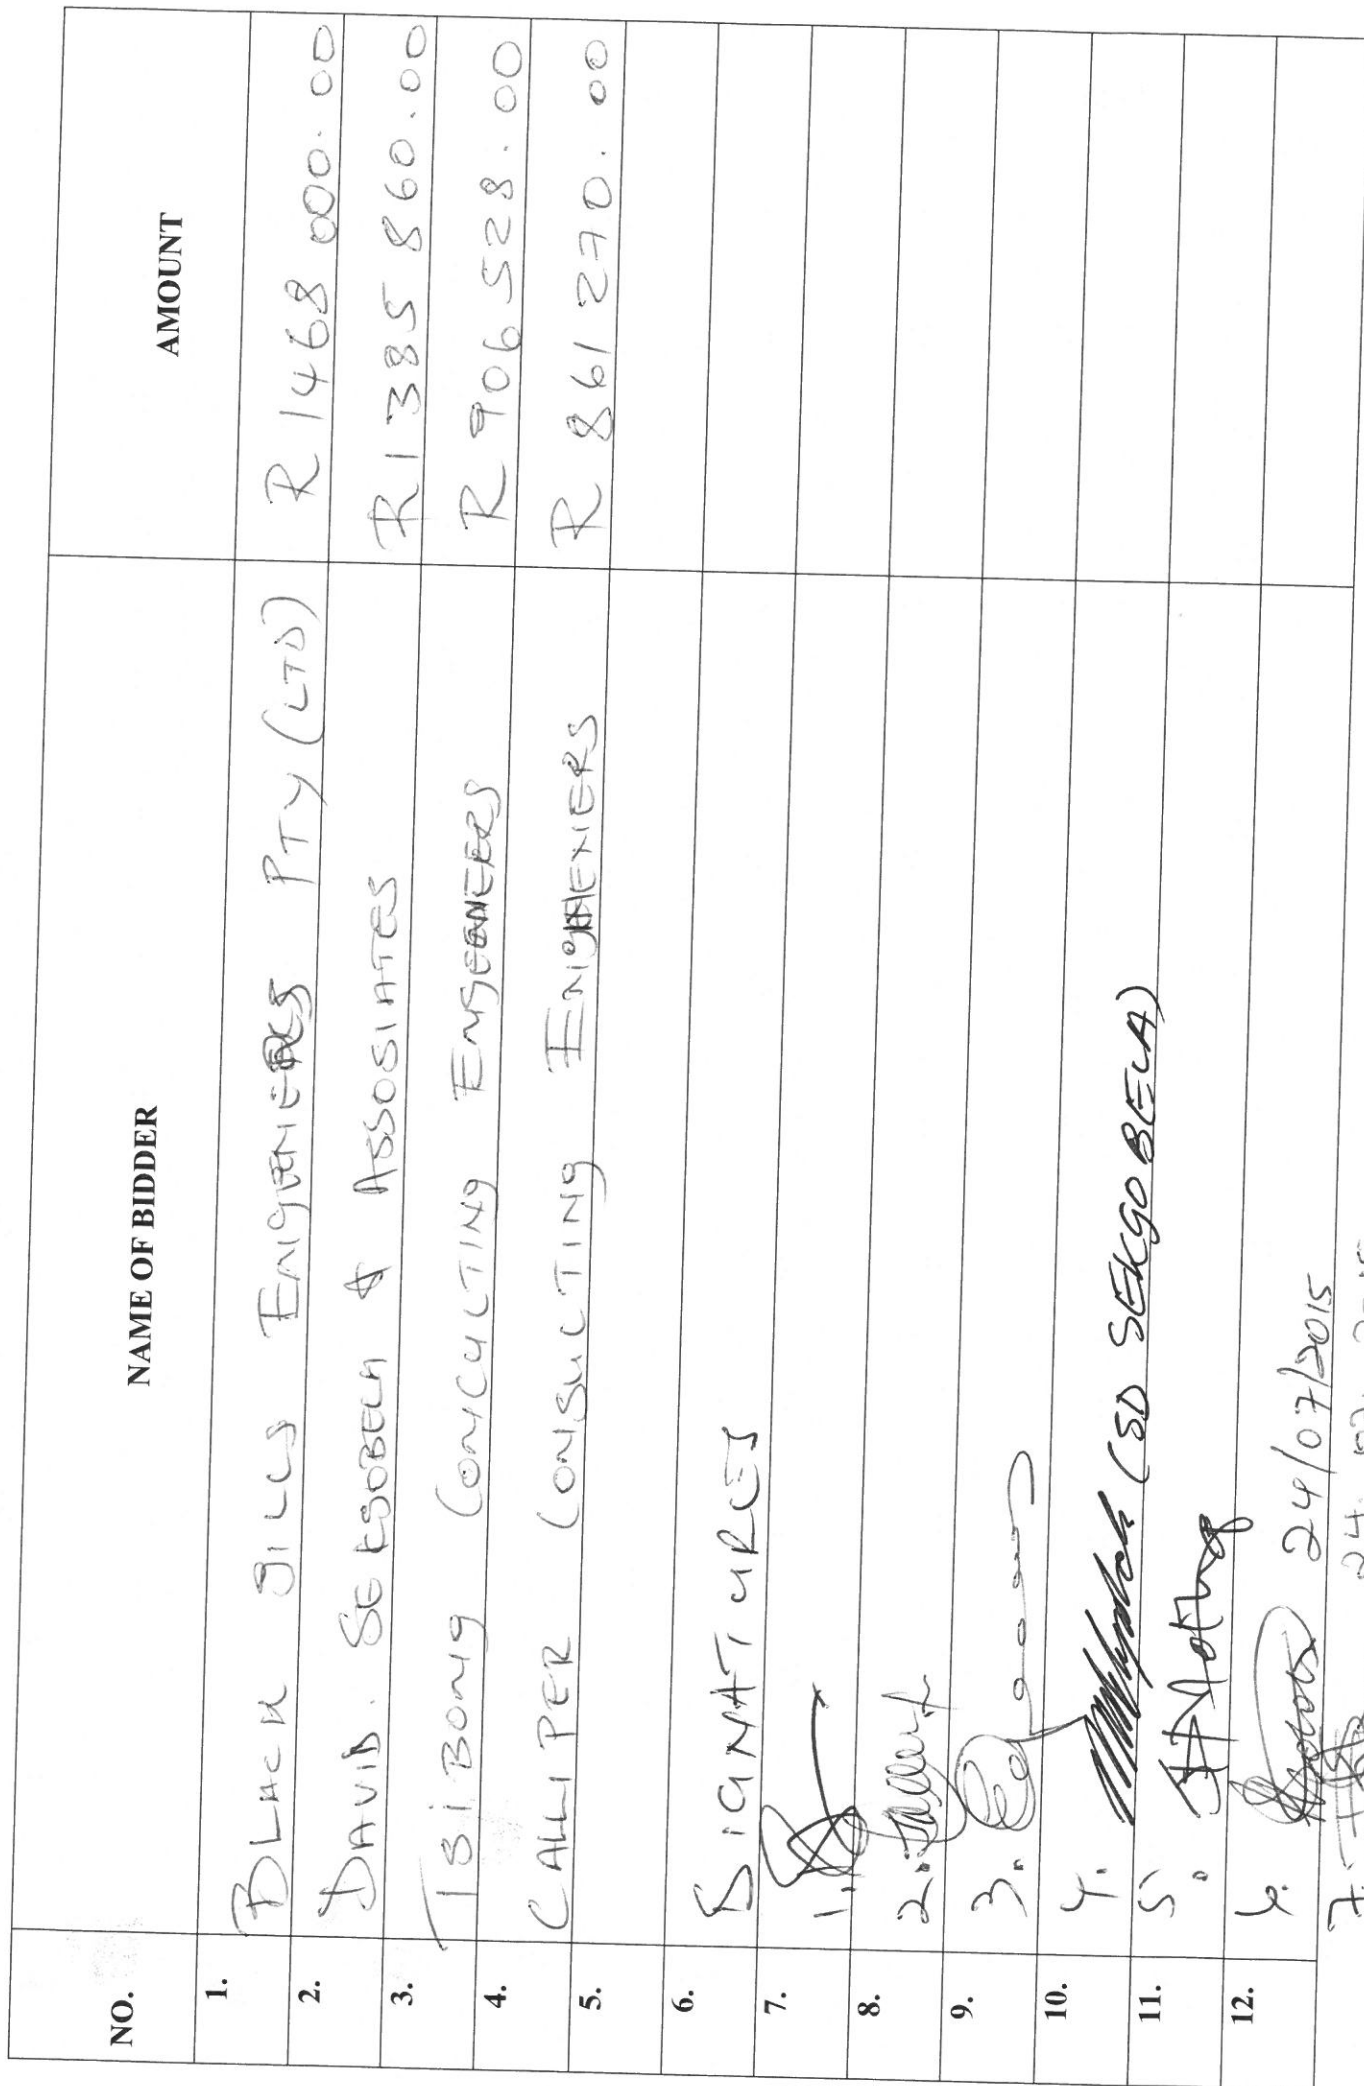 NO. NAME OF BIDDER AMOUNT
1. BLACK JILLS ENIGENIERS PTY (LTD) R 1468 000.00
2. DAVID. SEKGOBELA & ASSOSIATES R1385 860.00
3. TSIBONG CONCULTING ENGEENEERS R 906 528.00
4. CALLIPER CONSULTING R 861 270.00
5.
6. SIGNATURES
7. 1.
8. 2.
9. 3.
10. 4. (SD SEKGOBELA)
11. 5.
12. 6. 24/07/2015
7.